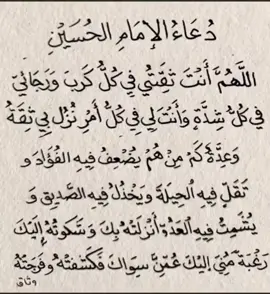 دُعَاءُ الإِمَامِ الحُسَيْنِ
اللَّهُمَّ أَنْتَ ثِقَتُي فِي كُلِّ كَربَ وَرَجَائِي
فِي كُلِّ شِدَّةٍ وَأَنْتَ لِي فِي كُلِّ أَمْرٍ نُزُل بِي ثِقَةُ
وَعِدَّةُ كَم مِنْ هُمْ يُضْعِفُ فِيهِ الفُؤَادَ وَ
تَقَلِّ فِيهِ الحِيلَةَ وَيَخْذُلُ فِيهِ الصَّدِيقَ وَ
يُشْمِتُ فِيهِ العَدُوُّ أَنْزَلْتَهُ بِكَ وَشَكَوتُهُ إِلَيْكَ
رَغْبَةً مُنِّي إِلَيْكَ عَمَّنِّ سِوَاكَ فَكَشَفْتَهُ وَفَرَجْتَهُ